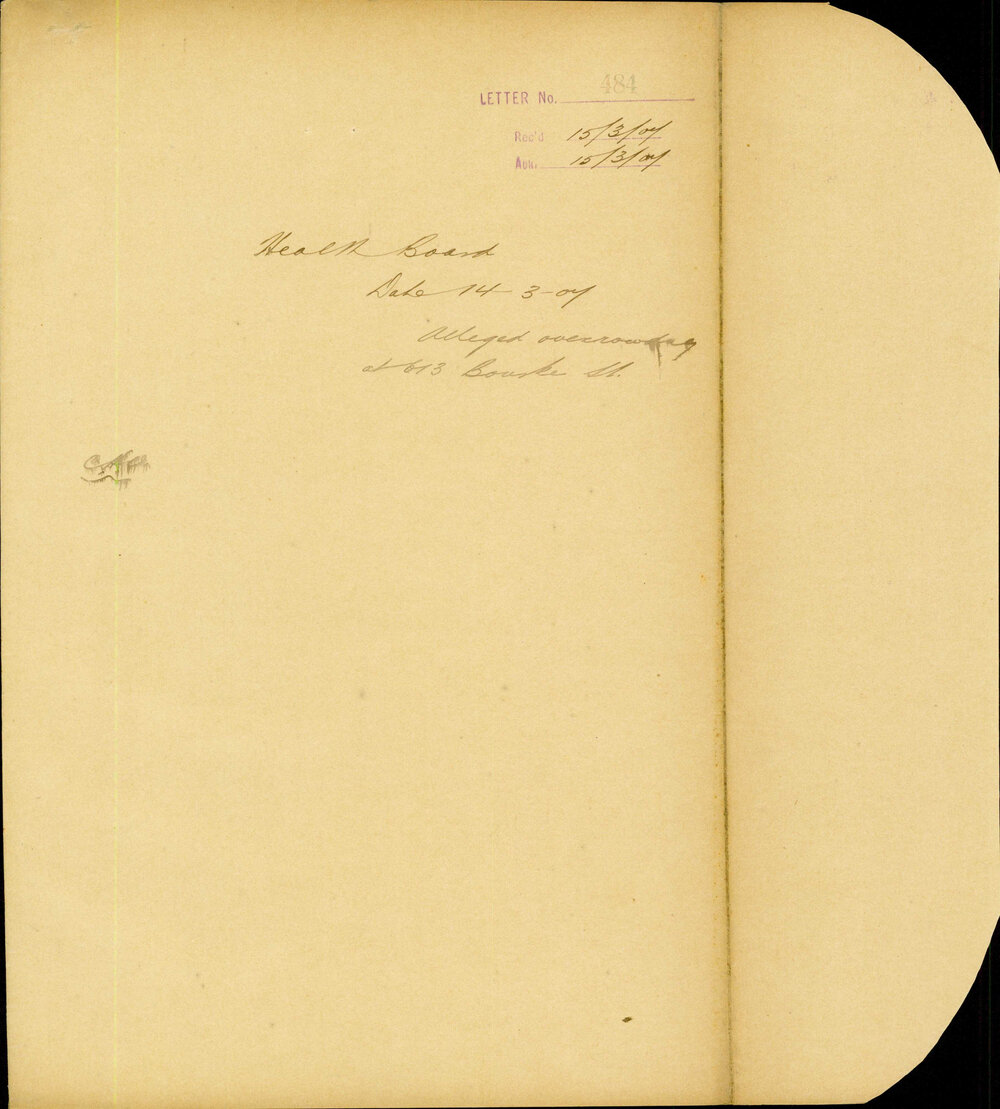 LETTER No. 484
Rec'd 15/3/07
Ack. 15/3/07
Health Board
Date 14-3-07
Alleged overcrowding
at 613 Bourke St.